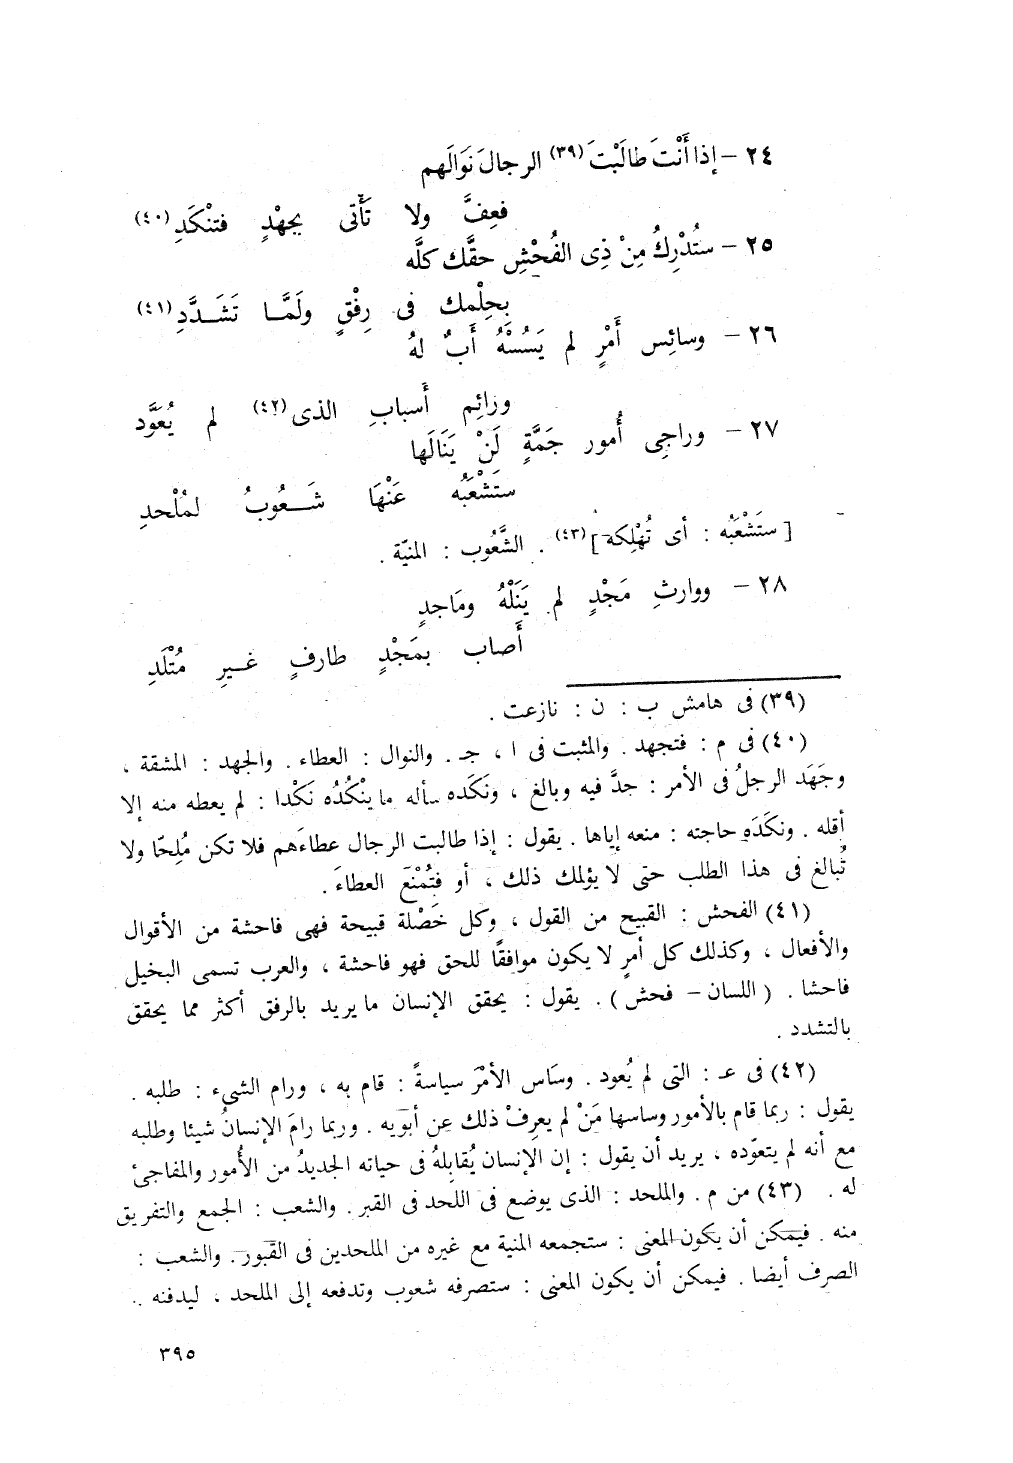 ٢٤ – إذا أَنْتَ طالَبْتَ (٣٩) الرجالَ نَوَالَهم
فعِفَّ ولا تَأْتى بجهْدٍ فتنْكَدِ (٤٠)
٢٥ – ستُدْرِكُ مِنْ ذِى الفُحْشِ حقَّك كلَّه
بِحِلْمك فى رِفْقٍ ولَمَّا تَشَدَّدِ (٤١)
٢٦ – وسائِس أَمْرٍ لم يَسُسْهُ أَبٌ لهُ
ورائِم أَسبابِ الذى (٤٢) لم يُعَوَّد
٢٧ – وراجِى أُمور جَمَّةٍ لَنْ يَنَالَها
ستَشْعَبُه عَنْهَا شَعُوبُ لمُلْحدِ
[ ستَشْعَبُه : أى تُهْلِكه ] (٤٣) . الشَّعُوب : المنيّة .
٢٨ – ووارثِ مَجْدٍ لم يَنَلْهُ ومَاجدٍ
أَصاب بمَجْدٍ طارفٍ غيرِ مُتْلَدِ
(٣٩) فى هامش ب : ن : نازعت .
(٤٠) فى م : فتجهد . والمثبت فى ا ، جـ . والنوال : العطاء . والجهد : المشقة ،
وجَهَد الرجلُ فى الأمر : جدَّ فيه وبالغ ، ونَكَده سأله ما ينْكُدُه نَكْدا : لم يعطه منه إلا
أقله . ونكَدَه حاجته : منعه إياها . يقول : إذا طالبت الرجال عطاءَهم فلا تكن مُلِحّا ولا
تُبالغ فى هذا الطلب حتى لا يؤلمك ذلك ، أو فتُمْنَعَ العطاءَ .
(٤١) الفحش : القبيح من القول ، وكل خَصْلة قبيحة فهى فاحشة من الأقوال
والأفعال ، وكذلك كل أمرٍ لا يكون موافقًا للحق فهو فاحشة ، والعرب تسمى البخيل
فاحشا . ( اللسان – فحش ) . يقول : يحقق الإنسان ما يريد بالرفق أكثر مما يحقق
بالتشدد .
(٤٢) فى عـ : التى لم يُعود . وسَاس الأمْرَ سياسةً : قام به ، ورام الشىء : طلبه .
يقول : ربما قام بالأمور وساسها مَنْ لم يعرِفْ ذلك عن أبَويه . وربما رامَ الإنسانُ شيئا وطلبه
مع أنه لم يتعوّده ، يريد أن يقول : إن الإنسان يُقابِلهُ فى حياته الجديدُ من الأُمور والمفاجئ
له . (٤٣) من م . والملحد : الذى يوضع فى اللحد فى القبر . والشعب : الجمع والتفريق
منه . فيمكن أن يكون المعنى : ستجمعه المنية مع غيره من الملحدين فى القبور . والشعب :
الصرف أيضا . فيمكن أن يكون المعنى : ستصرفه شعوب وتدفعه إلى الملحد ، ليدفنه ..
٣٩٥